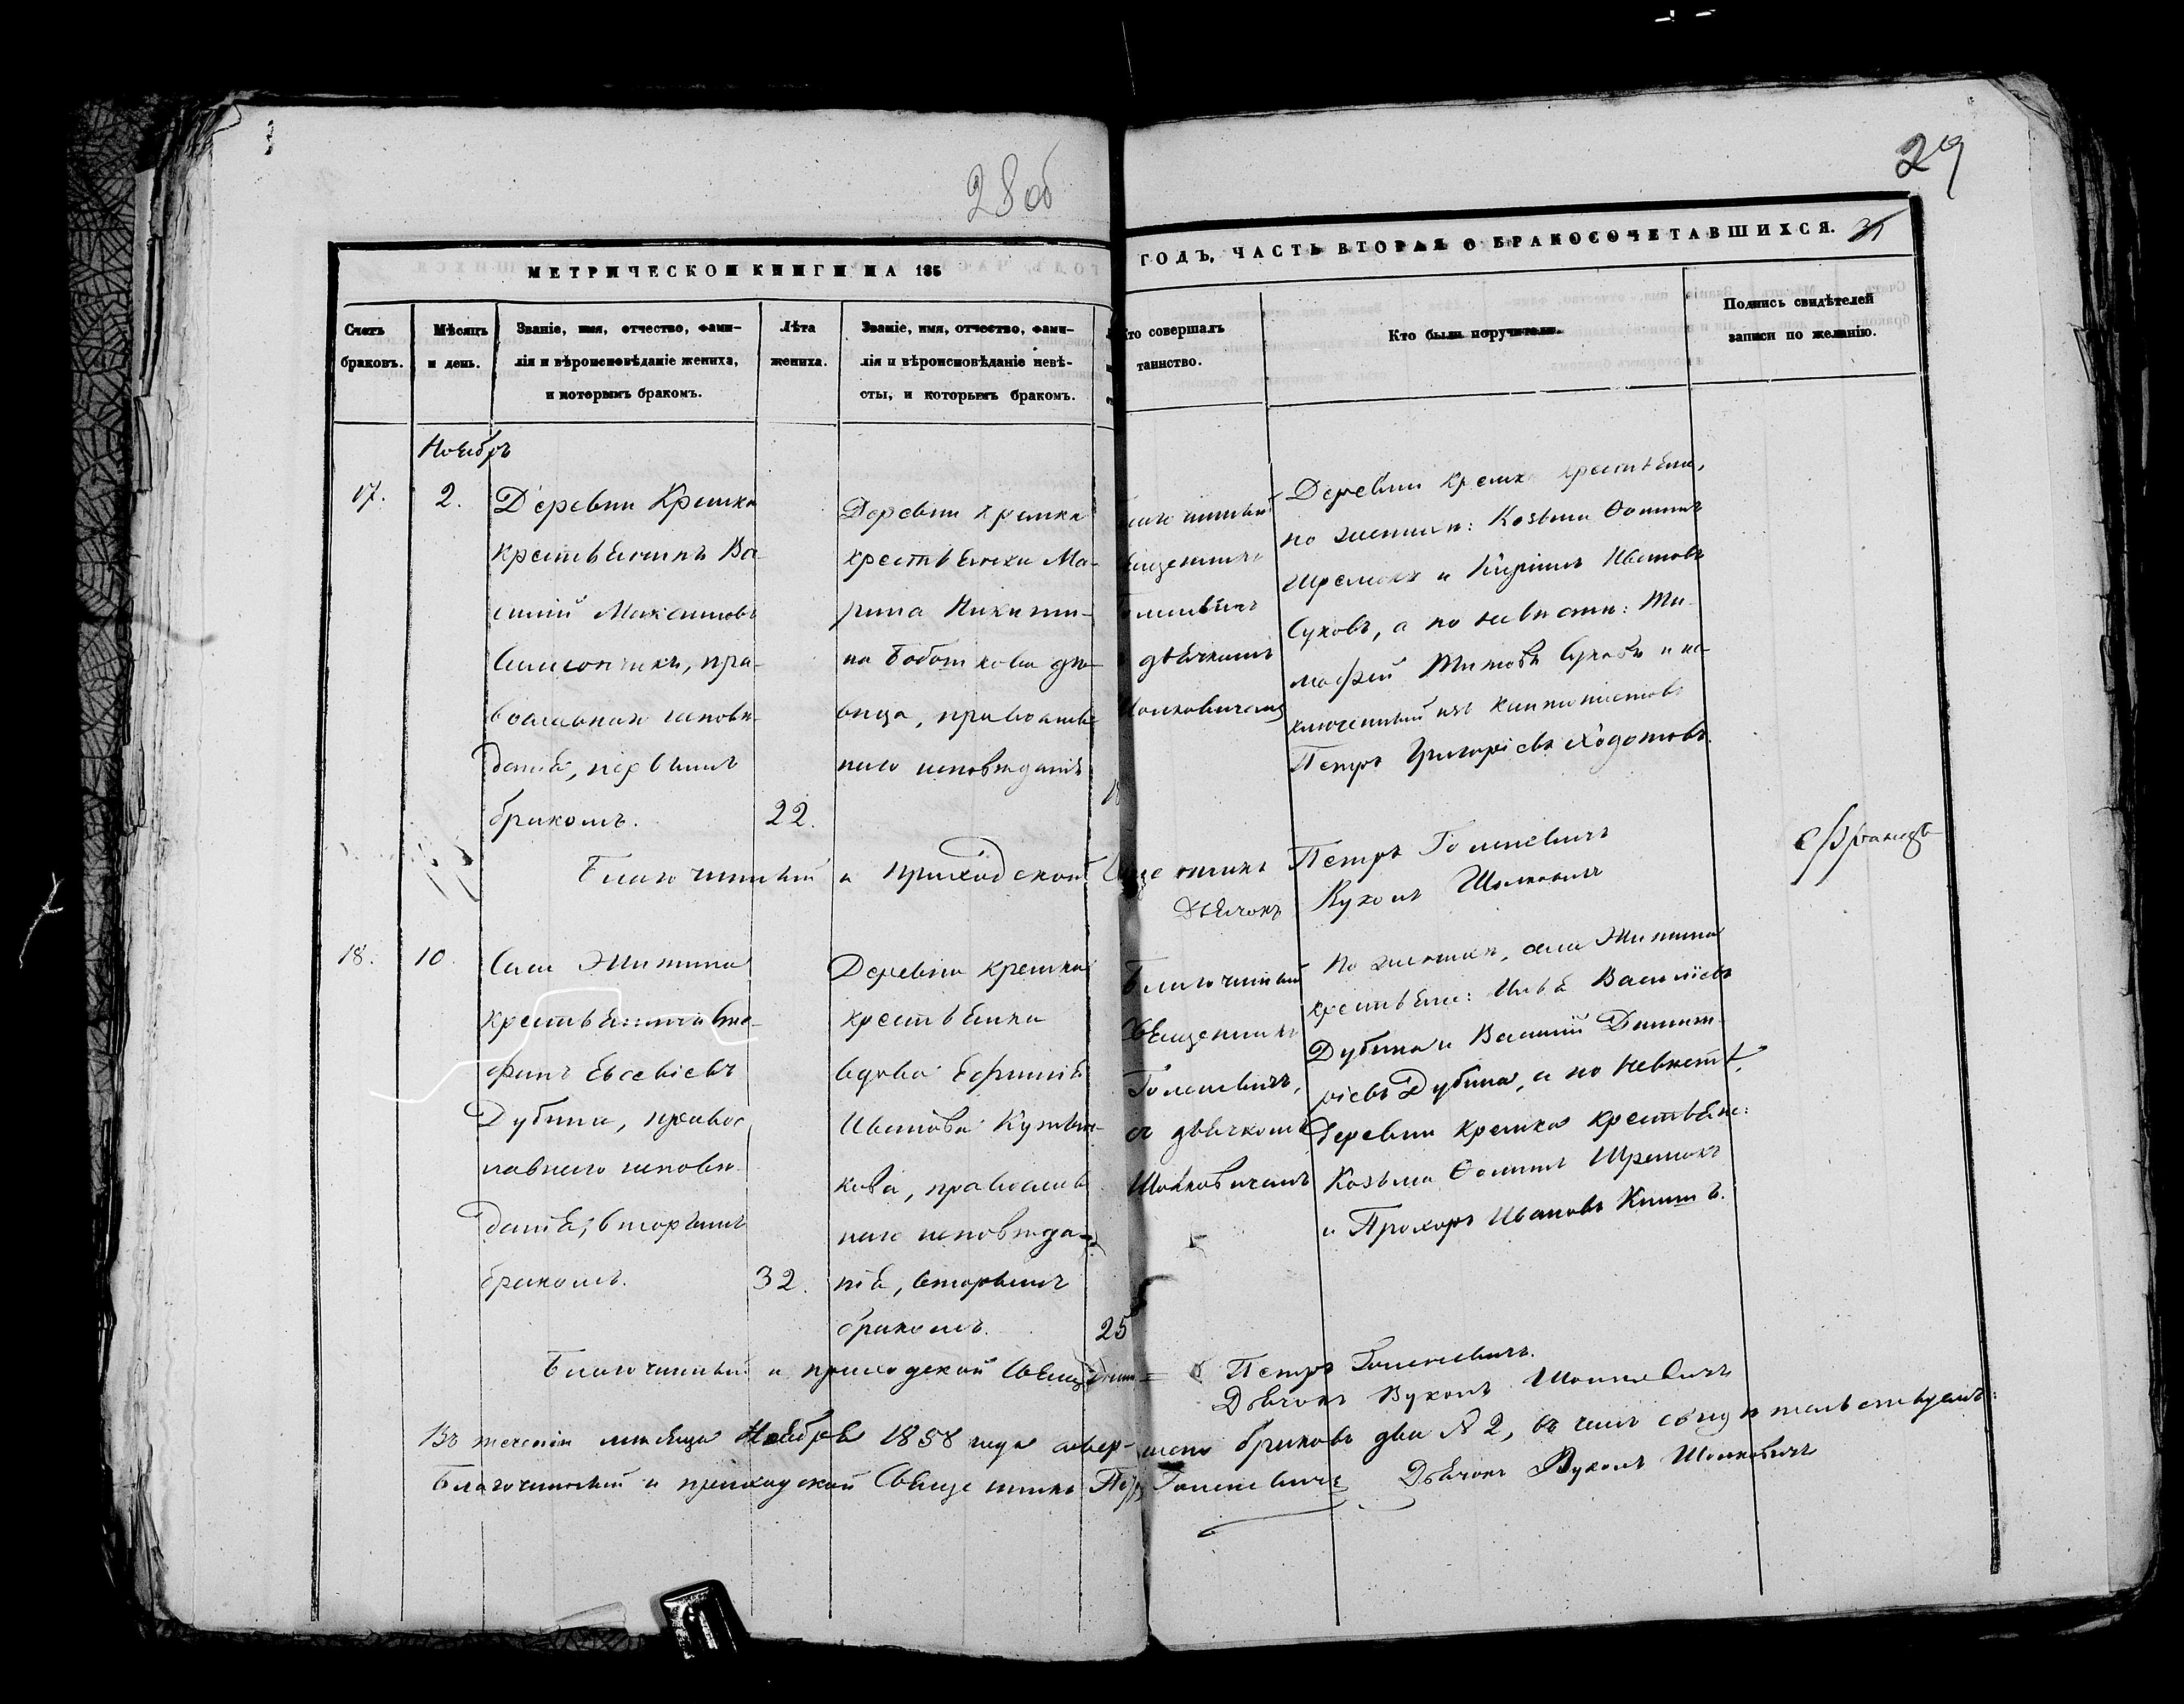 28 об
29
МЕТРИЧЕСКОЙ КНИГИ НА 185
ГОДЪ, ЧАСТЬ ВТОРАЯ О БРАКОСОЧЕТАВШИХСЯ.
Счетъ
браковъ.
Мѣсяцъ
и день.
Званіе, имя, отчество, фами-
лія и вѣроисповѣданіе жениха,
и которымъ бракомъ.
Лѣта
жениха.
Званіе, имя, отчество, фами-
лія и вѣроисповѣданіе невѣ-
сты, и которымъ бракомъ.
Кто совершалъ
таинство.
Кто были поручители.
Подпись свидѣтелей
записи по желанію.
Ноябрь
17.
2.
Деревни Кремка
крестьянинъ Ва-
силій Максимовъ
пра-
вославнаго исповѣ-
данія, первымъ
бракомъ.
22.
Деревни Кремка
крестьянка Ма-
рина Никити-
на дѣ-
вица, православ-
наго исповѣданія
Благочинный
Священникъ
Голеневичъ
дьячкомъ
Шолковичемъ
Деревни Кремка крестьяне,
по женихѣ: Козьма Ѳоминъ
Шремокъ и Кирилъ Ивановъ
Суковъ, а по невѣсте: Ти-
мофей Титовъ и ис-
ключенный изъ кантонистовъ
Петръ Григоріевъ Ходотовъ.
Благочинный и приходской Священникъ Петръ Голеневичъ
Дьячокъ Вуколъ Шолковичъ
18.
10.
Села Житина
крестьянинъ
Евсевіевъ
Дубина, правос-
лавнаго исповѣ-
данія, вторымъ
бракомъ.
32.
Деревни Кремка
крестьянка
вдова Ефимія
Иванова
кова, православ-
наго исповѣда-
нія, вторымъ
бракомъ.
25
Благочинный
Священникъ
Голеневичъ,
съ дьячкомъ
Шолковичемъ
По женихѣ, села Житина
крестьяне: Илья Василіевъ
Дубина и Василій Димит-
ріевъ Дубина, а по невѣстѣ,
деревни Кремка крестьяне:
Козьма Ѳоминъ Шремокъ
и Прохоръ Ивановъ
Благочинный и приходской Священникъ Петръ Голеневичъ.
Дьячокъ Вуколъ Шолковичъ
Въ теченіи мѣсяца Ноября 1858 года совершено браковъ два № 2, въ чемъ свидѣтельствуемъ:
Благочинный и приходской Священникъ Петръ Голеневичъ Дьячокъ Вуколъ Шолковичъ